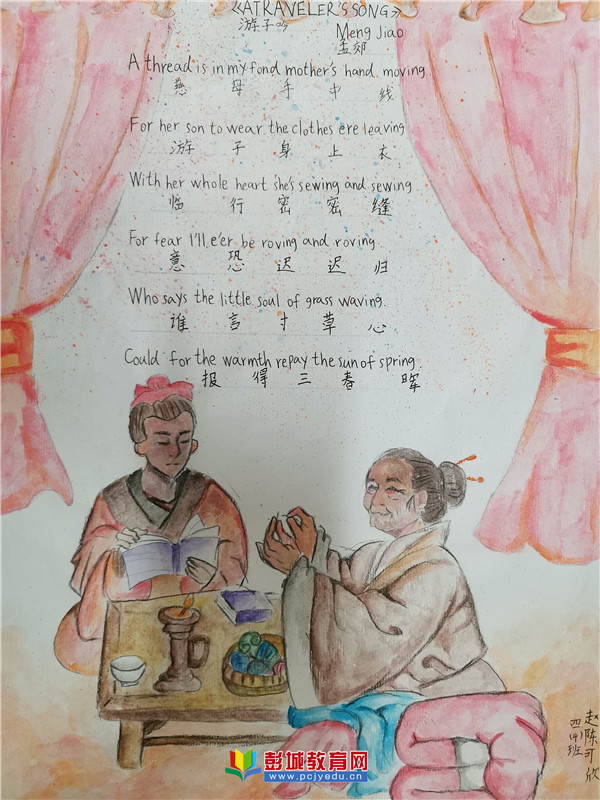 《A TRAVELER'S SONG》
游子吟
Meng Jiao
孟郊
A thread is in my fond mother's hand moving.
慈 母 手 中 线
For her son to wear the clothes ere leaving
游 子 身 上 衣
With her whole heart she's sewing and sewing
临 行 密 密 缝
For fear I'll e'er be roving and roving.
意 恐 迟 迟 归
Who says the little soul of grass waving.
谁 言 寸 草 心
Could for the warmth repay the sun of spring.
报 得 三 春 晖
赵陈可欣
四(4)班
彭城教育网
www.pcjyedu.cn